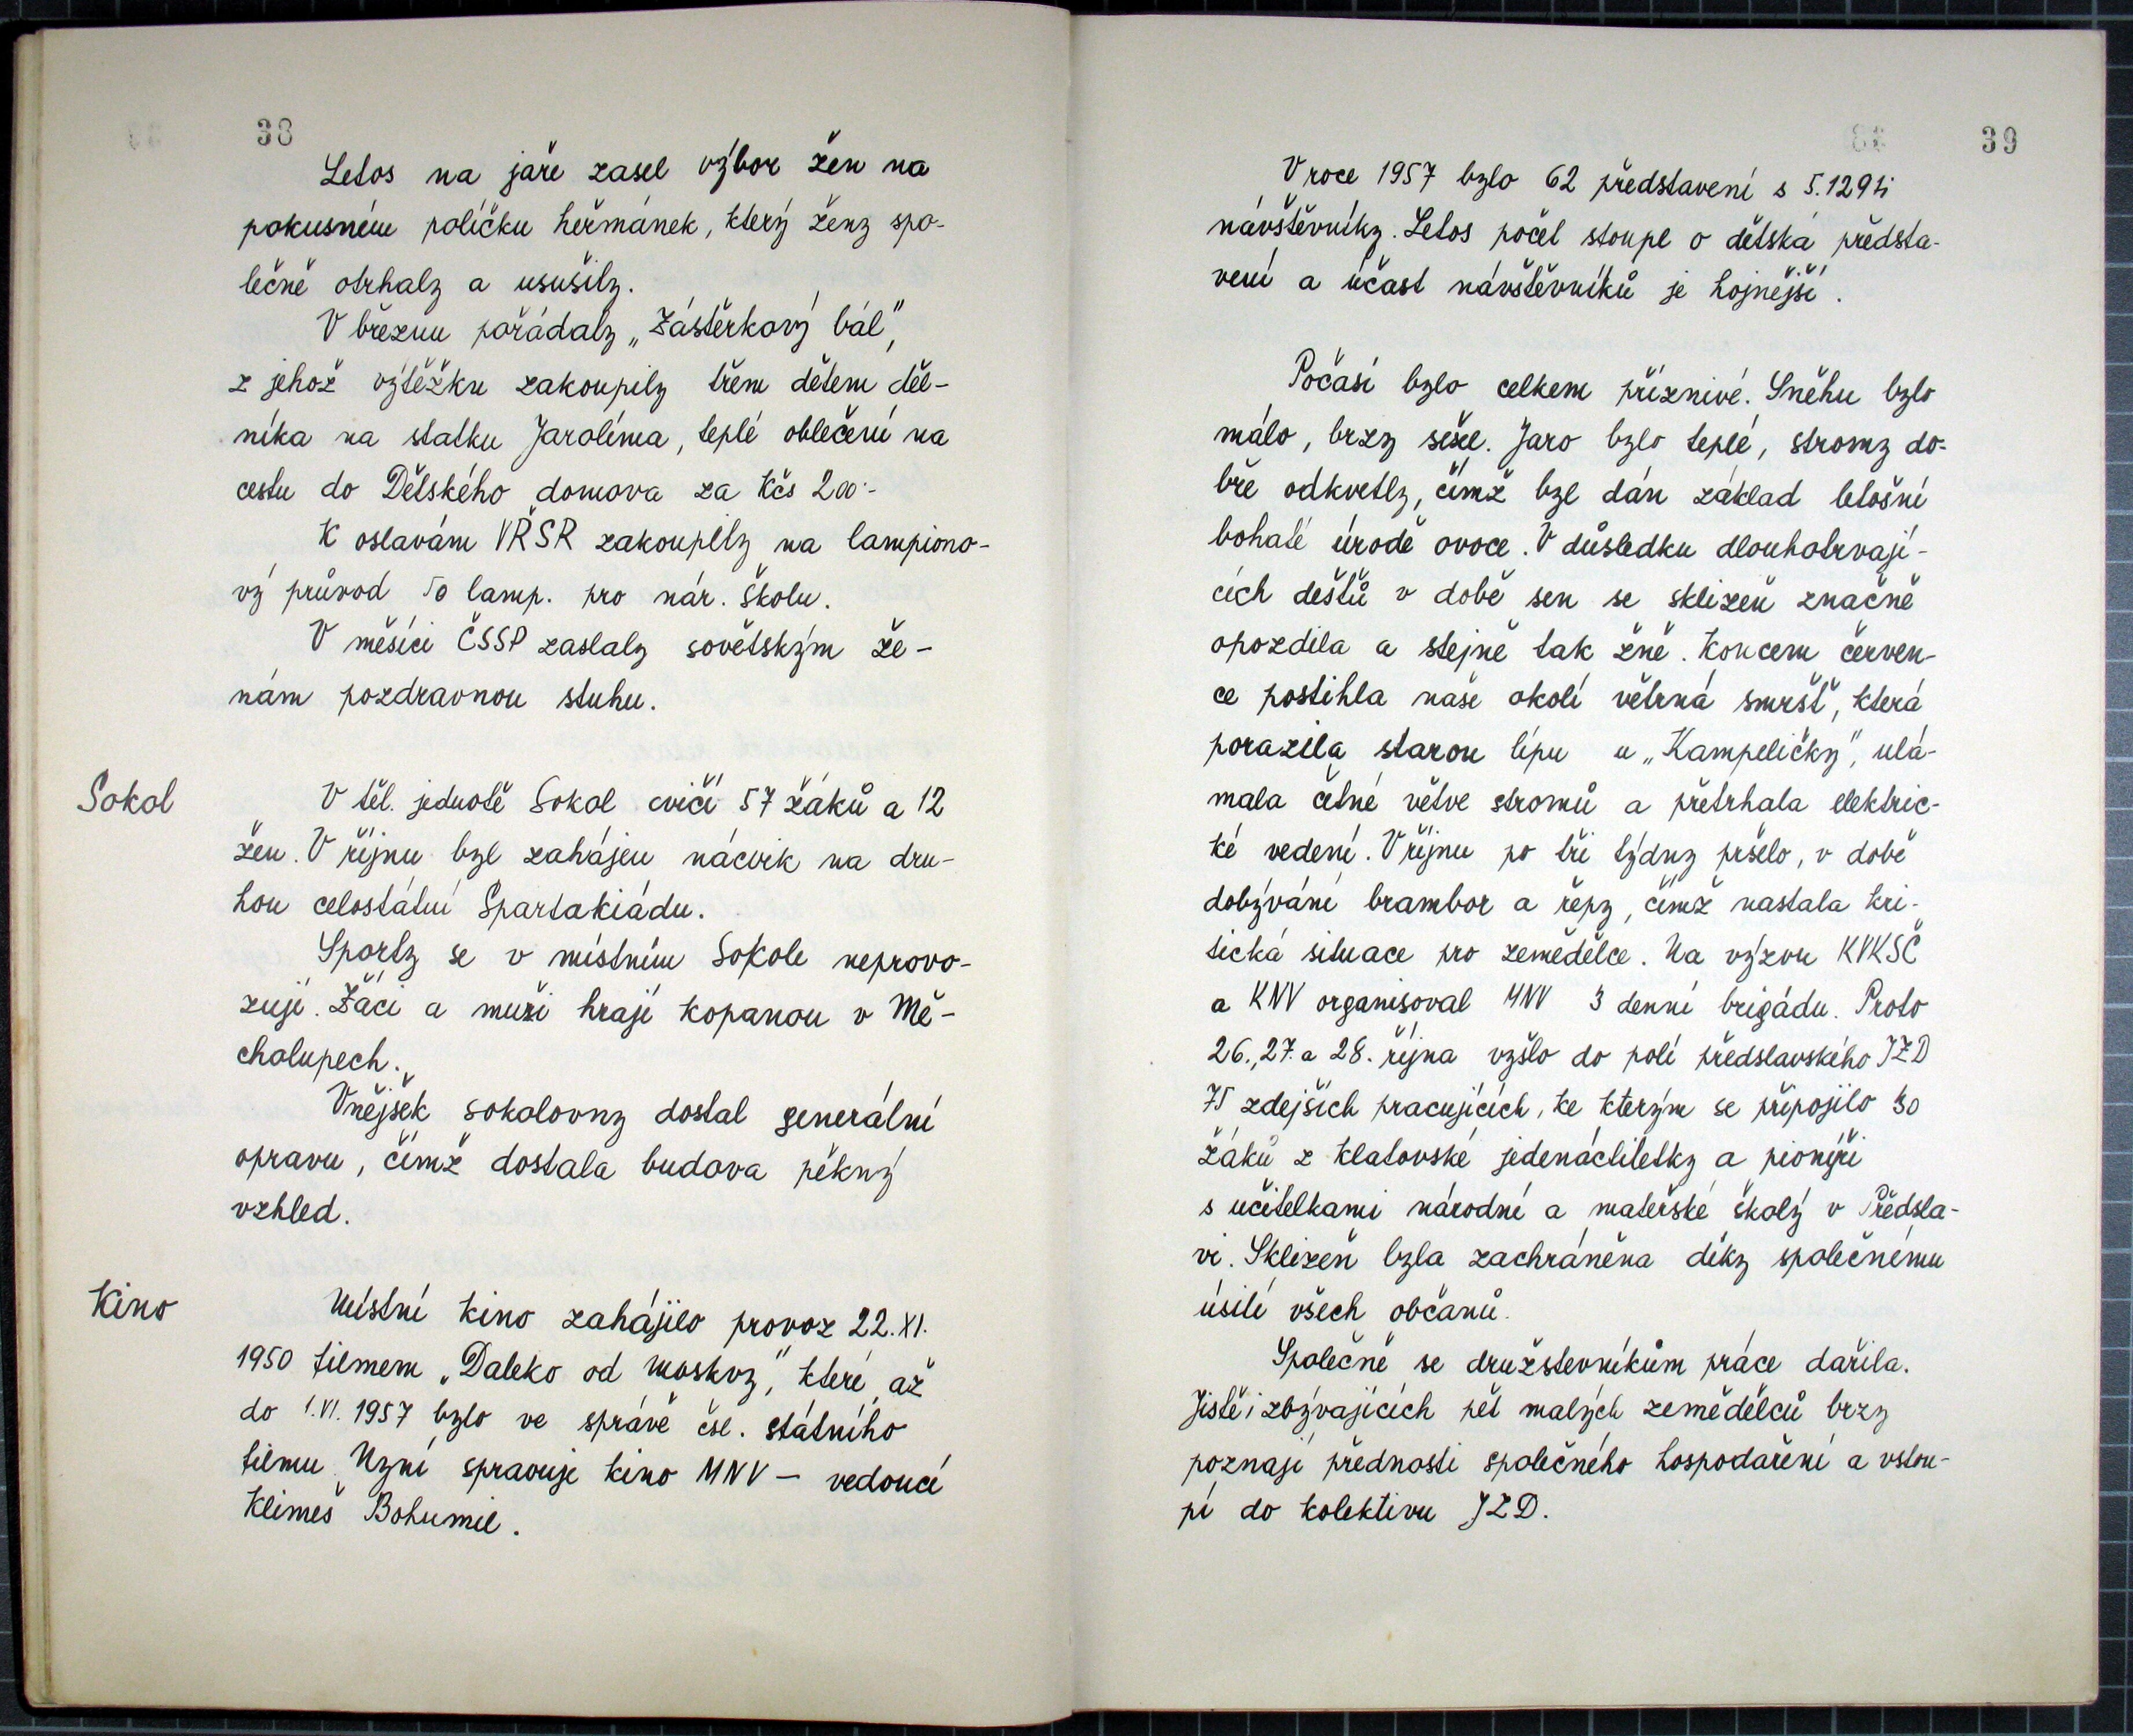 38
Letos na jaře zasel výbor žen na
pokusném políčku heřmánek, který ženy spo-
lečně otrhaly a usušily.
V březnu pořádaly „Zástěrkový bál",
z jehož výtěžku zakoupily třem dětem děl-
níka na statku Jarolíma, teplé oblečení na
cestu do Dětského domova za Kčs 200·-
K oslavám VŘSR zakoupily na lampiono-
vý průvod 50 lamp. pro nár. školu.
V měsíci ČSSP zaslaly sovětským že-
nám pozdravnou stuhu.
Sokol
V těl. jednotě Sokol cvičí 57 žáků a 12
žen. V říjnu byl zahájen nácvik na dru-
hou celostátní Spartakiádu.
Sporty se v místním Sokole neprovo-
zují. Žáci a muži hrají kopanou v Mě-
cholupech.
Vnějšek sokolovny dostal generální
opravu, čímž dostala budova pěkný
vzhled.
Kino
Místní kino zahájilo provoz 22.XI.
1950 filmem „Daleko od Moskvy", které až
do 1.VI. 1957 bylo ve správě čsl. státního
filmu. Nyní spravuje kino MNV – vedoucí
Klimeš Bohumil.
39
V roce 1957 bylo 62 představení s 5.129ti
návštěvníky. Letos počet stoupl o dětská předsta-
vení a účast návštěvníků je hojnější.
Počasí bylo celkem příznivé. Sněhu bylo
málo, brzy sešel. Jaro bylo teplé, stromy do-
bře odkvetly, čímž byl dán základ letošní
bohaté úrodě ovoce. V důsledku dlouhotrvají-
cích dešťů v době sen se sklizeň značně
opozdila a stejně tak žně. Koncem červen-
ce postihla naše okolí větrná smršť, která
porazila starou lípu u „Kampeličky", ulá-
mala četné větve stromů a přetrhala elektric-
ké vedení. V říjnu po tři týdny pršelo, v době
dobývání brambor a řepy, čímž nastala kri-
tická situace pro zemědělce. Na výzvu KVKSČ
a KNV organisoval MNV 3 denní brigádu. Proto
26., 27. a 28. října vyšlo do polí předslavského JZD
75 zdejších pracujících, ke kterým se připojilo 30
žáků z klatovské jedenáctiletky a pionýři
s učitelkami národní a mateřské školy v Předsla-
vi. Sklizeň byla zachráněna díky společnému
úsilí všech občanů.
Společně se družstevníkům práce dařila.
Jistě i zbývajících pět malých zemědělců brzy
poznají přednosti společného hospodaření a vstou-
pí do kolektivu JZD.